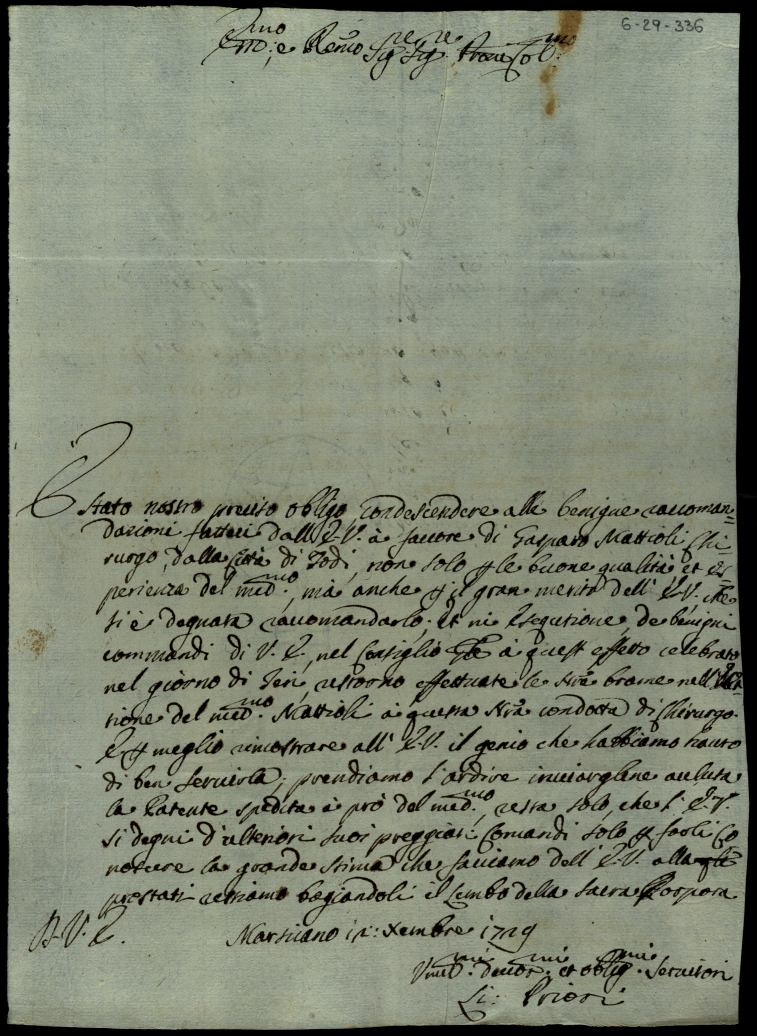 6-29-336
Em̃o: e Rev̄mo Sig.re Sig.re Prone Col.mo
È Stato nostro preciso obligo Condescendere alle benigne raccoman=
dazioni fatteci dall' E.V. à favore di Gasparo Mattioli Chi=
rurgo, dalla Città di Todi, non solo ꝑ le buone qualità et es=
perienza del med.mo, mà anche ꝑ il gran merito dell' E.V. che
si è degnata raccomandarlo. Et in esegutione de benigni
commandi di V. E., nel Consiglio Gñle à quest effetto celebrato
nel giorno di Ieri, restorno effettuate le Nrẽ brame nell'
tione del med.mo Mattioli à questa Nrã condotta di Chirurgo.
E ꝑ meglio rimostrare all' E.V. il genio che habbiamo hauto
di ben Servirla, prendiamo l'ardire inviargliene acclusa
la Patente spedita à prò del med.mo, resta solo, che l' E.V.
si degni d'ulteriori suoi preggiati Comandi solo ꝑ farli Co
noscere la grande stima che facciamo dell' E.V. alla qle
prostrati restiamo bagiandoli il Lembo della Sacra Porpora
D. V. E. Marsciano 12: Xembre 1729
Vmil.mi devot.mi et oblig.mi Servitori
Li: Priori